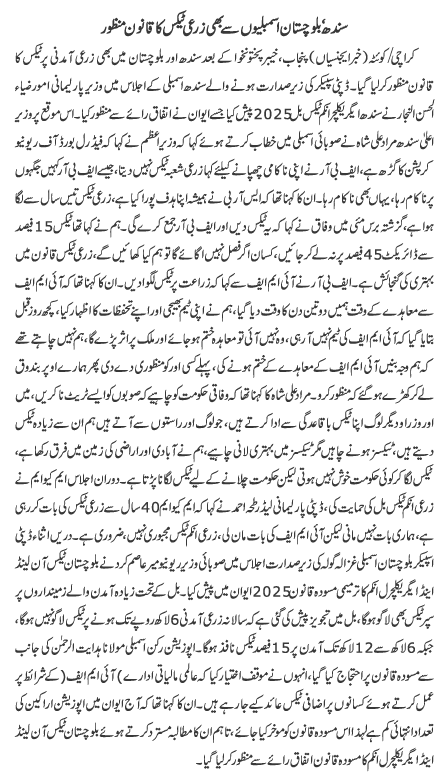 سندھ، بلوچستان اسمبلیوں سے بھی زرعی ٹیکس کا قانون منظور
کراچی/کوئٹہ (خبر ایجنسیاں) پنجاب، خیبر پختونخوا کے بعد سندھ اور بلوچستان میں بھی زرعی آمدنی پر ٹیکس کا
قانون منظور کر لیا گیا۔ ڈپٹی سپیکر کی زیر صدارت ہونے والے سندھ اسمبلی کے اجلاس میں وزیر پارلیمانی امور ضیاء
الحسن النجار نے سندھ ایگریکلچر انکم ٹیکس بل 2025 پیش کیا جسے ایوان نے اتفاق رائے سے منظور کیا۔ اس موقع پر وزیر
اعلیٰ سندھ مراد علی شاہ نے صوبائی اسمبلی میں خطاب کرتے ہوئے کہا کہ وزیراعظم نے کہا کہ فیڈرل بورڈ آف ریونیو
کرپشن کا گڑھ ہے، ایف بی آر نے اپنی ناکامی چھپانے کیلئے کہا زرعی شعبہ ٹیکس نہیں دیتا، جیسے ایف بی آر کہیں جگہوں
پر ناکام رہا، یہاں بھی ناکام رہا۔ ان کا کہنا تھا کہ ایس آر بی نے ہمیشہ اپنا ہدف پورا کیا ہے، زرعی ٹیکس تیس سال سے لگا
ہوا ہے، گزشتہ برس مئی میں وفاق نے کہا کہ یہ ٹیکس دیں اور ایف بی آر جمع کرے گی۔ ہم نے کہا تھا ٹیکس 15 فیصد
سے ڈائریکٹ 45 فیصد پر نہ لے کر جائیں، کسان اگر فصل نہیں اگائے گا تو ہم کیا کھائیں گے، زرعی ٹیکس قانون میں
بہتری کی گنجائش ہے۔ ایف بی آر نے آئی ایم ایف سے کہا کہ زراعت پر ٹیکس لگوا دیں۔ ان کا کہنا تھا کہ آئی ایم ایف
سے معاہدے کے وقت ہمیں دو تین دن کا وقت دیا گیا، ہم نے اپنی ٹیم بھیجی اور اپنے تحفظات کا اظہار کیا، کچھ روز قبل
بتایا گیا کہ آئی ایم ایف کی ٹیم نہیں آ رہی، وہ نہیں آئی تو معاہدہ ختم ہو جائے اور ملک پر اثر پڑے گا، ہم نہیں چاہتے تھے
کہ ہم وجہ بنیں آئی ایم ایف کے معاہدے کے ختم ہونے کی، پہلے کسی اور کو منظوری دے دی پھر ہمارے اوپر بندوق
لے کر کھڑے ہو گئے کہ منظور کرو۔ مراد علی شاہ کا کہنا تھا کہ وفاقی حکومت کو چاہیے کہ صوبوں کو ایسے ٹریٹ نا کریں، میں
اور وزرا و دیگر لوگ اپنا ٹیکس باقاعدگی سے ادا کرتے ہیں، جو لوگ اور راستوں سے آتے ہیں ہم ان سے زیادہ ٹیکس
دیتے ہیں، ٹیکسز ہونے چاہیں مگر ٹیکسز میں بہتری لانی چاہیے، ہم نے آبادی اور اراضی کی زمین میں فرق رکھا ہے،
ٹیکس لگا کر کوئی حکومت خوش نہیں ہوتی لیکن حکومت چلانے کے لیے ٹیکس لگانا پڑتا ہے۔ دوران اجلاس ایم کیو ایم نے
زرعی انکم ٹیکس بل کی حمایت کی، ڈپٹی پارلیمانی لیڈر طحہ احمد نے کہا کہ ایم کیو ایم 40 سال سے زرعی ٹیکس کی بات کر رہی
ہے، ہماری بات نہیں مانی لیکن آئی ایم ایف کی بات مان لی، زرعی انکم ٹیکس مجبوری نہیں، ضروری ہے۔ دریں اثناء ڈپٹی
اسپیکر بلوچستان اسمبلی غزالہ گولہ کی زیر صدارت اجلاس میں صوبائی وزیر ریونیو میر عاصم کرد نے بلوچستان ٹیکس آن لینڈ
اینڈ ایگریکلچرل انکم کا ترمیمی مسودہ قانون 2025 ایوان میں پیش کیا۔ بل کے تحت زیادہ آمدن والے زمینداروں پر
سپر ٹیکس بھی لاگو ہوگا، بل میں تجویز پیش کی گئی ہے کہ سالانہ زرعی آمدنی 6 لاکھ روپے تک ہونے پر ٹیکس لاگو نہیں ہوگا،
جبکہ 6 لاکھ سے 12 لاکھ تک آمدن پر 15 فیصد ٹیکس نافذ ہوگا۔ اپوزیشن رکن اسمبلی مولانا ہدایت الرحمٰن کی جانب
سے مسودہ قانون پر احتجاج کیا گیا، انہوں نے موقف اختیار کیا کہ عالمی مالیاتی ادارے (آئی ایم ایف) کے شرائط پر
عمل کرتے ہوئے کسانوں پر اضافی ٹیکس عائد کیے جا رہے ہیں۔ ان کا کہنا تھا کہ آج ایوان میں اپوزیشن اراکین کی
تعداد انتہائی کم ہے لہٰذا اس مسودہ قانون کو موخر کیا جائے، تاہم ان کا مطالبہ مسترد کرتے ہوئے بلوچستان ٹیکس آن لینڈ
اینڈ ایگریکلچرل انکم کا مسودہ قانون اتفاق رائے سے منظور کر لیا گیا۔